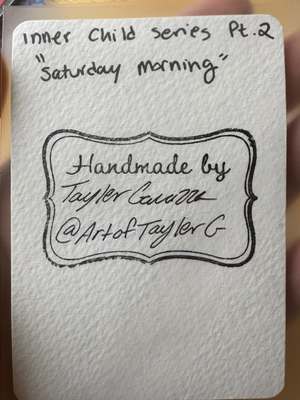 Inner Child Series Pt.2
"Saturday Morning"
Handmade by
Tayler
@ArtofTaylerG